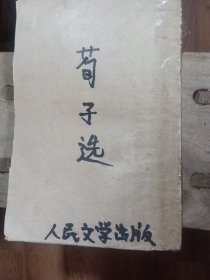 荀子选
人民文学出版